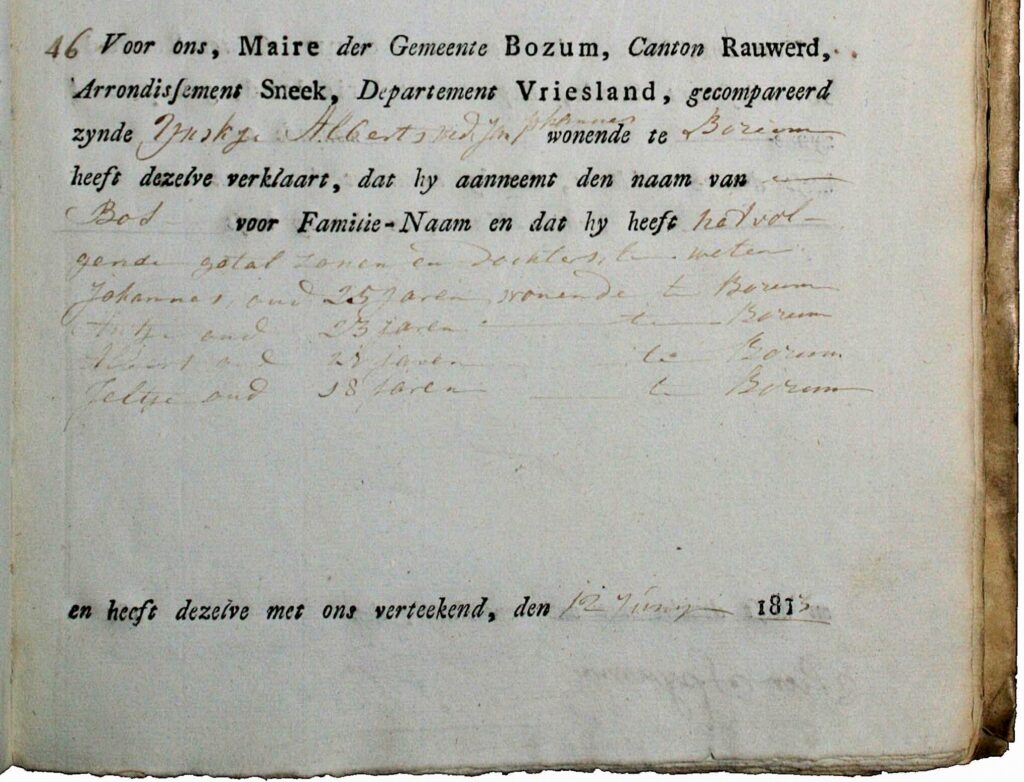 46 Voor ons, Maire der Gemeente Bozum, Canton Rauwerd,
Arrondisſement Sneek, Departement Vriesland, gecompareerd
zynde Ynskje Alberts wed Jan Johannes wonende te Bozum
heeft dezelve verklaart, dat hy aanneemt den naam van
Bos voor Familie-Naam en dat hy heeft het vol-
gende getal zonen en dochters, te weten
Johannes, oud 25 jaren wonende te Bozum
oud 23 jaren te Bozum
Albert oud jaren te Bozum
Jeltje oud 18 jaren te Bozum
en heeft dezelve met ons verteekend, den 12 Juny 1813